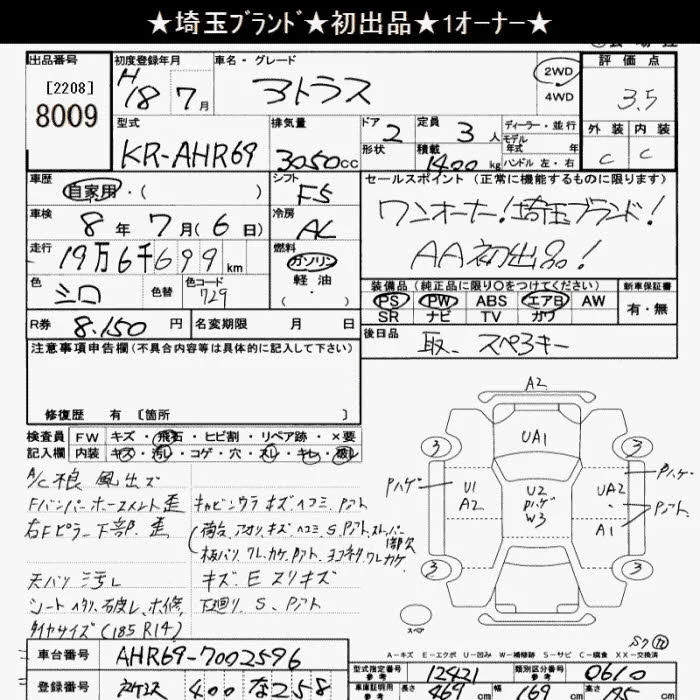 ★埼玉ﾌﾞﾗﾝﾄﾞ★初出品★1オーナー★
出品番号 初度登録年月 車名・グレード 評価点
[2208]
8009
H18 7月 アトラス 2WD 4WD 3.5
型式 排気量 ドア 2 定員 3 人 ディーラー・並行 外装 内装
モデル 年式 年
KR-AHR69 3050cc 形状 積載 1400 kg ハンドル 左・右 C C
車歴 シフト セールスポイント (正常に機能するものに限ります)
自家用・( ) F5
ワンオーナー!埼玉ブランド!
車検 8年 7月(6日) 冷房 AC
AA初出品!
走行 19万6千699km 燃料 ガソリン 軽油 ( ・ )
色 シロ 色替 色コード 729
装備品 (純品に限り○をつけてください) 新車保証書
PS PW ABS エアB AW 有・無
SR ナビ TV カワ
R券 8.150 円 名変期限 月 日
後日品 取、スペアキー
注意事項申告欄(不具合内容等は具体的に記入して下さい)
修復歴 有 [箇所 ]
検査員 FW キズ・飛石・ヒビ割・リペア跡・×要
記入欄 内装 キズ・汚レ・コゲ・穴・スレ・キレ・破レ
A/C 根 風出ズ
Fバンパーホースメント歪 キャビンウラ キズ ヘコミ Pアト
右Fピラー下部 歪
天バリ シミ汚レ キズ E スリキズ
下廻り S、Pアト
タイヤサイズ(185R14)
A2
3 UA1 3
Pハゲ U1 A2 U2 Pハゲ W3 UA2 Pハゲ
A1 Pアト
3 3
スペア
A-キズ E-エクボ U-凹み W-補修跡 S-サビ C-腐食 XX-交換済
車台番号 AHR69-7002596
型式指定番号 参考 12421 類別区分番号 参考 0610
登録番号 400 な 258
車庫証明用 参考 長さ 469 cm 幅 169 cm 高さ